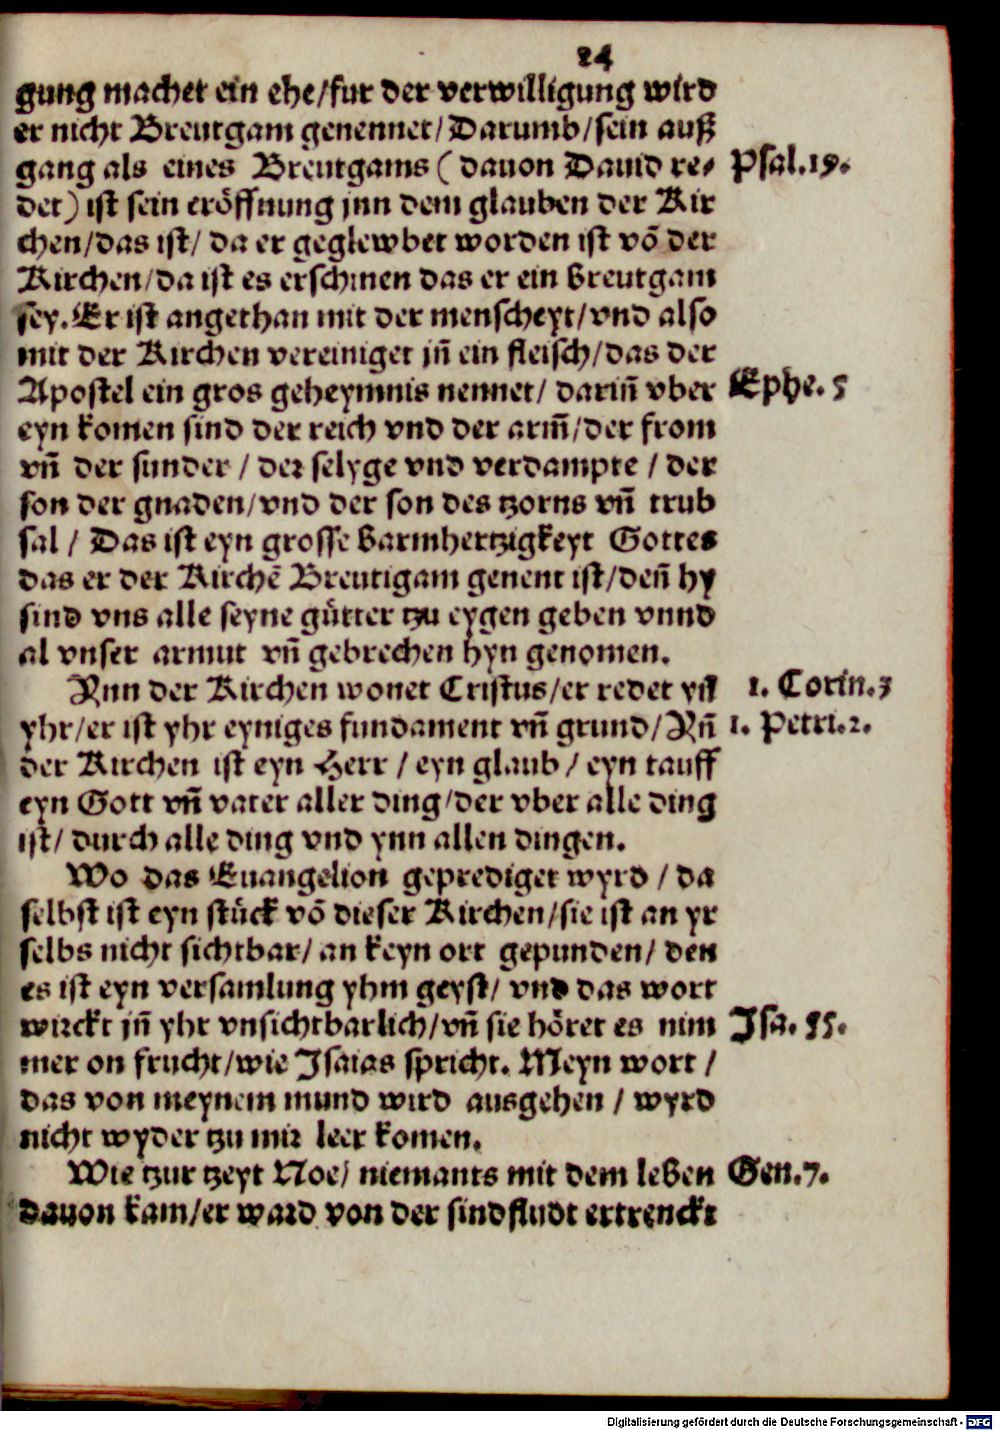 24
gung machet ein ehe/fur der verwilligung wird
er nicht Breutgam genennet/Darumb/sein auß
gang als eines Breutgams (dauon Dauid re- Psal.19.
det) ist sein eröffnung jnn dem glauben der Kir
chen/das ist/ da er geglewbet worden ist vō der
Kirchen/da ist es erschinen das er ein breutgam
sey. Er ist angethan mit der menscheyt/vnd also
mit der Kirchen vereiniget jn̄ ein fleisch/das der
Apostel ein gros geheymnis nennet/ darin̄ vber Ephe. 5
eyn komen sind der reich vnd der arm̄/der from
vn̄ der sunder / der selyge vnd verdampte / der
son der gnaden/vnd der son des tzorns vn̄ trub
sal / Das ist eyn grosse barmhertzigkeyt Gottes
das er der Kirchē Breutigam genent ist/den̄ hy
sind vns alle seyne gütter tzu eygen geben vnnd
al vnser armut vn̄ gebrechen hyn genomen.
Ynn der Kirchen wonet Cristus/er redet yn̄ 1. Corin.3
yhr/er ist yhr eyniges fundament vn̄ grund/Yn̄ 1. Petri.2.
der Kirchen ist eyn Herr / eyn glaub / eyn tauff
eyn Gott vn̄ vater aller ding/der vber alle ding
ist/ durch alle ding vnd ynn allen dingen.
Wo das Euangelion geprediget wyrd / da
selbst ist eyn stück vō dieser Kirchen/sie ist an yr
selbs nicht sichtbar/ an keyn ort gepunden/ den
es ist eyn versamlung yhm geyst/ vnd das wort
wirckt jn̄ yhr vnsichtbarlich/vn̄ sie höret es nim Isa. 55.
mer on frucht/wie Isaias spricht. Meyn wort /
das von meynem mund wird ausgehen / wyrd
nicht wyder tzu mir leer komen.
Wie tzur tzeyt Noe/ niemants mit dem leben Gen.7.
dauon kam/er ward von der sindfludt ertrenckt
Digitalisierung gefördert durch die Deutsche Forschungsgemeinschaft - DFG